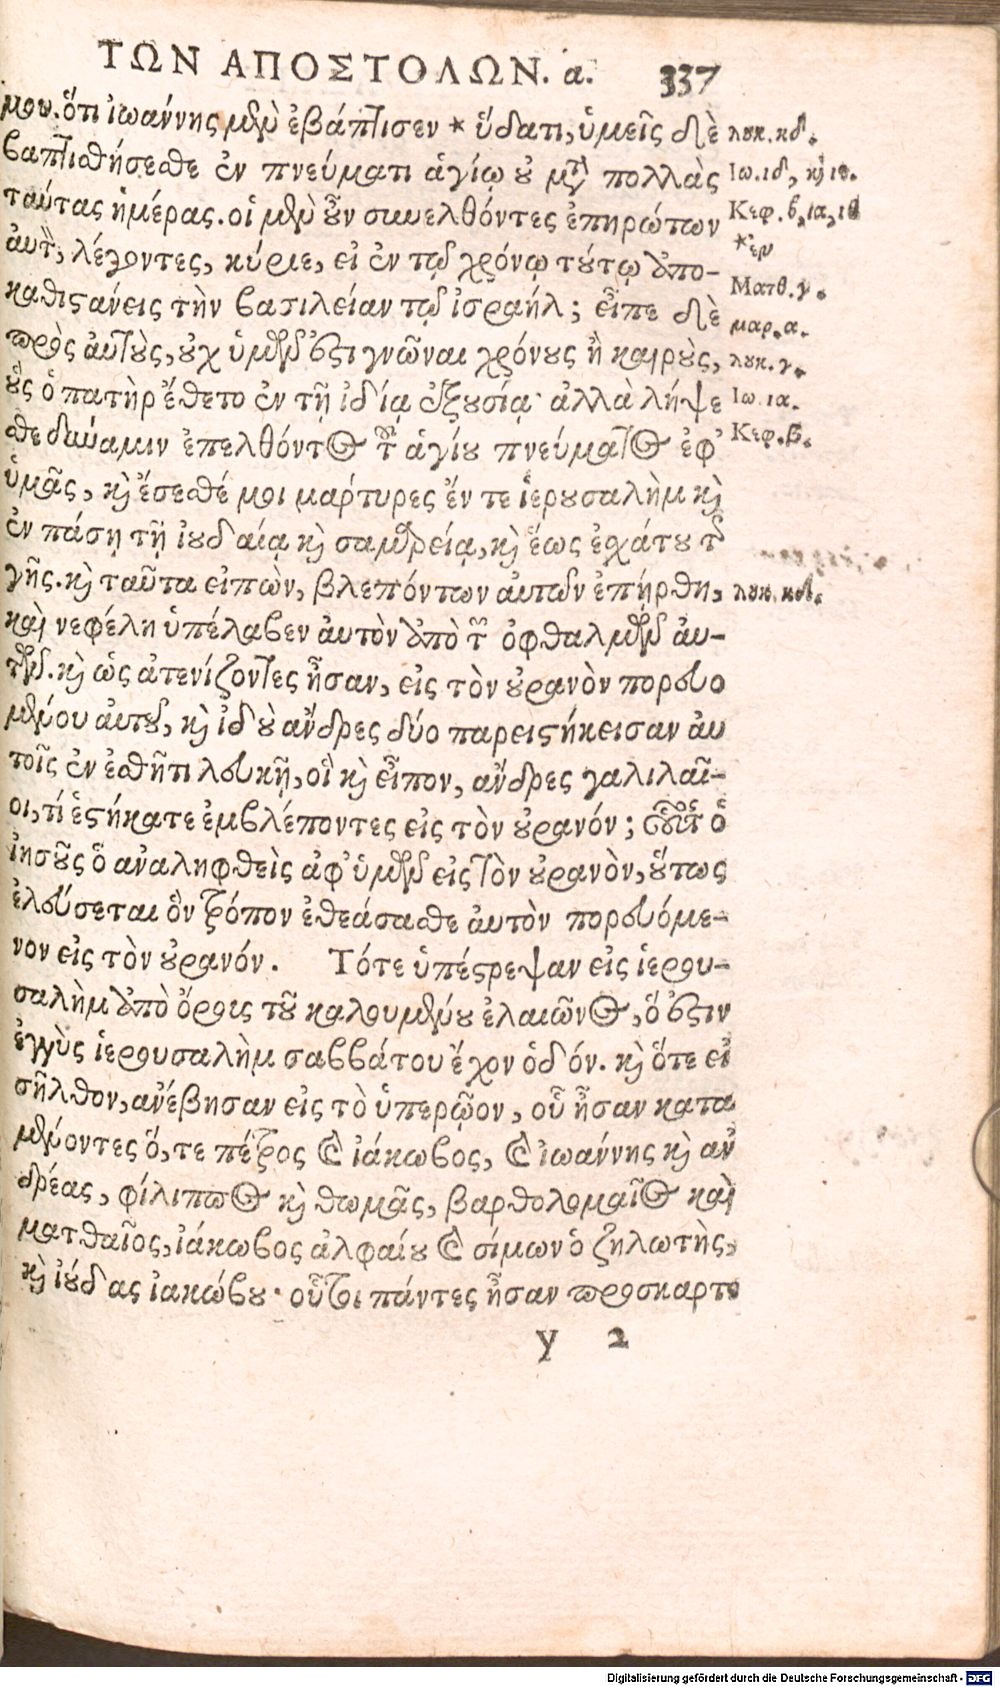 ΤΩΝ ΑΠΟΣΤΟΛΩΝ. ά. 337
μου. ὅτι ἰωάννης μὲν ἐβάπτισεν * ὕδατι, ὑμεῖς δὲ
βαπτισθήσεσθε ἐν πνεύματι ἁγίῳ οὐ μετὰ πολλὰς
ταύτας ἡμέρας. οἱ μὲν οὖν συνελθόντες ἐπηρώτων
αὐτὸν, λέγοντες, κύριε, εἰ ἐν τῷ χρόνῳ τούτῳ ἀπο-
καθιστάνεις τὴν βασιλείαν τῷ ἰσραήλ; εἶπε δὲ
πρὸς αὐτοὺς, οὐχ ὑμῶν ἐστι γνῶναι χρόνους ἢ καιροὺς,
οὓς ὁ πατὴρ ἔθετο ἐν τῇ ἰδίᾳ ἐξουσίᾳ· ἀλλὰ λήψε
σθε δύναμιν ἐπελθόντος τοῦ ἁγίου πνεύματος ἐφ᾽
ὑμᾶς, καὶ ἔσεσθέ μοι μάρτυρες ἔν τε ἱερουσαλὴμ καὶ
ἐν πάσῃ τῇ ἰουδαίᾳ καὶ σαμαρείᾳ, καὶ ἕως ἐσχάτου τῆς
γῆς. καὶ ταῦτα εἰπὼν, βλεπόντων αὐτῶν ἐπήρθη,
καὶ νεφέλη ὑπέλαβεν αὐτὸν ἀπὸ τῶν ὀφθαλμῶν αὐ-
τῶν. καὶ ὡς ἀτενίζοντες ἦσαν, εἰς τὸν οὐρανὸν πορευο
μένου αὐτοῦ, καὶ ἰδοὺ ἄνδρες δύο παρειστήκεισαν αὐ
τοῖς ἐν ἐσθῆτι λευκῇ, οἳ καὶ εἶπον, ἄνδρες γαλιλαῖ-
οι, τί ἑστήκατε ἐμβλέποντες εἰς τὸν οὐρανόν; οὗτος ὁ
ἰησοῦς ὁ ἀναληφθεὶς ἀφ᾽ ὑμῶν εἰς τὸν οὐρανὸν, οὕτως
ἐλεύσεται ὃν τρόπον ἐθεάσασθε αὐτὸν πορευόμε-
νον εἰς τὸν οὐρανόν. Τότε ὑπέστρεψαν εἰς ἱερου-
σαλὴμ ἀπὸ ὄρους τοῦ καλουμένου ἐλαιῶνος, ὅ ἐστιν
ἐγγὺς ἱερουσαλὴμ σαββάτου ἔχον ὁδόν. καὶ ὅτε εἰ
σῆλθον, ἀνέβησαν εἰς τὸ ὑπερῷον, οὗ ἦσαν κατα
μένοντες ὅ, τε πέτρος καὶ ἰάκωβος, καὶ ἰωάννης καὶ ἀν
δρέας, φίλιππος καὶ θωμᾶς, βαρθολομαῖος καὶ
ματθαῖος, ἰάκωβος ἀλφαίου καὶ σίμων ὁ ζηλωτὴς,
καὶ ἰούδας ἰακώβου· οὗτοι πάντες ἦσαν προσκαρτε
y 2
λουκ. κδ.
Ιω. ιδ, καὶ ιε.
Κεφ. β, ια, ιθ
*ἐν
Ματθ. γ.
μαρ. α.
λουκ. γ.
Ιω. ια.
Κεφ. β.
λουκ. κδ.
Digitalisierung gefördert durch die Deutsche Forschungsgemeinschaft - DFG